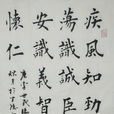 疾風知勁
蕩識誠臣
安識義智
懷仁